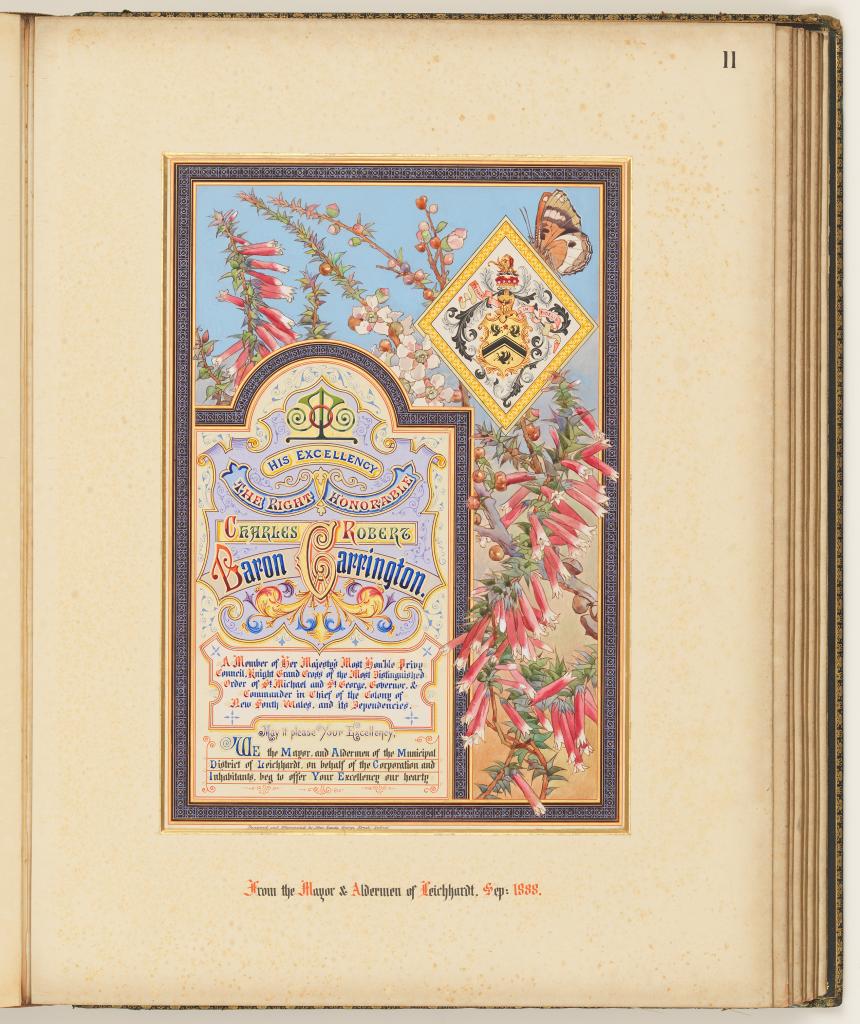 11
HIS EXCELLENCY
THE RIGHT HONORABLE
CHARLES ROBERT
Baron Carrington.
A Member of Her Majesty's Most Hon'ble Privy
Council, Knight Grand Cross of the Most Distinguished
Order of St. Michael and St. George, Governor, &
Commander in Chief of the Colony of
New South Wales, and its Dependencies.
May it please Your Excellency,
WE the Mayor, and Aldermen of the Municipal
District of Leichhardt, on behalf of the Corporation and
Inhabitants, beg to offer Your Excellency our hearty
From the Mayor & Aldermen of Leichhardt, Sep: 1888.